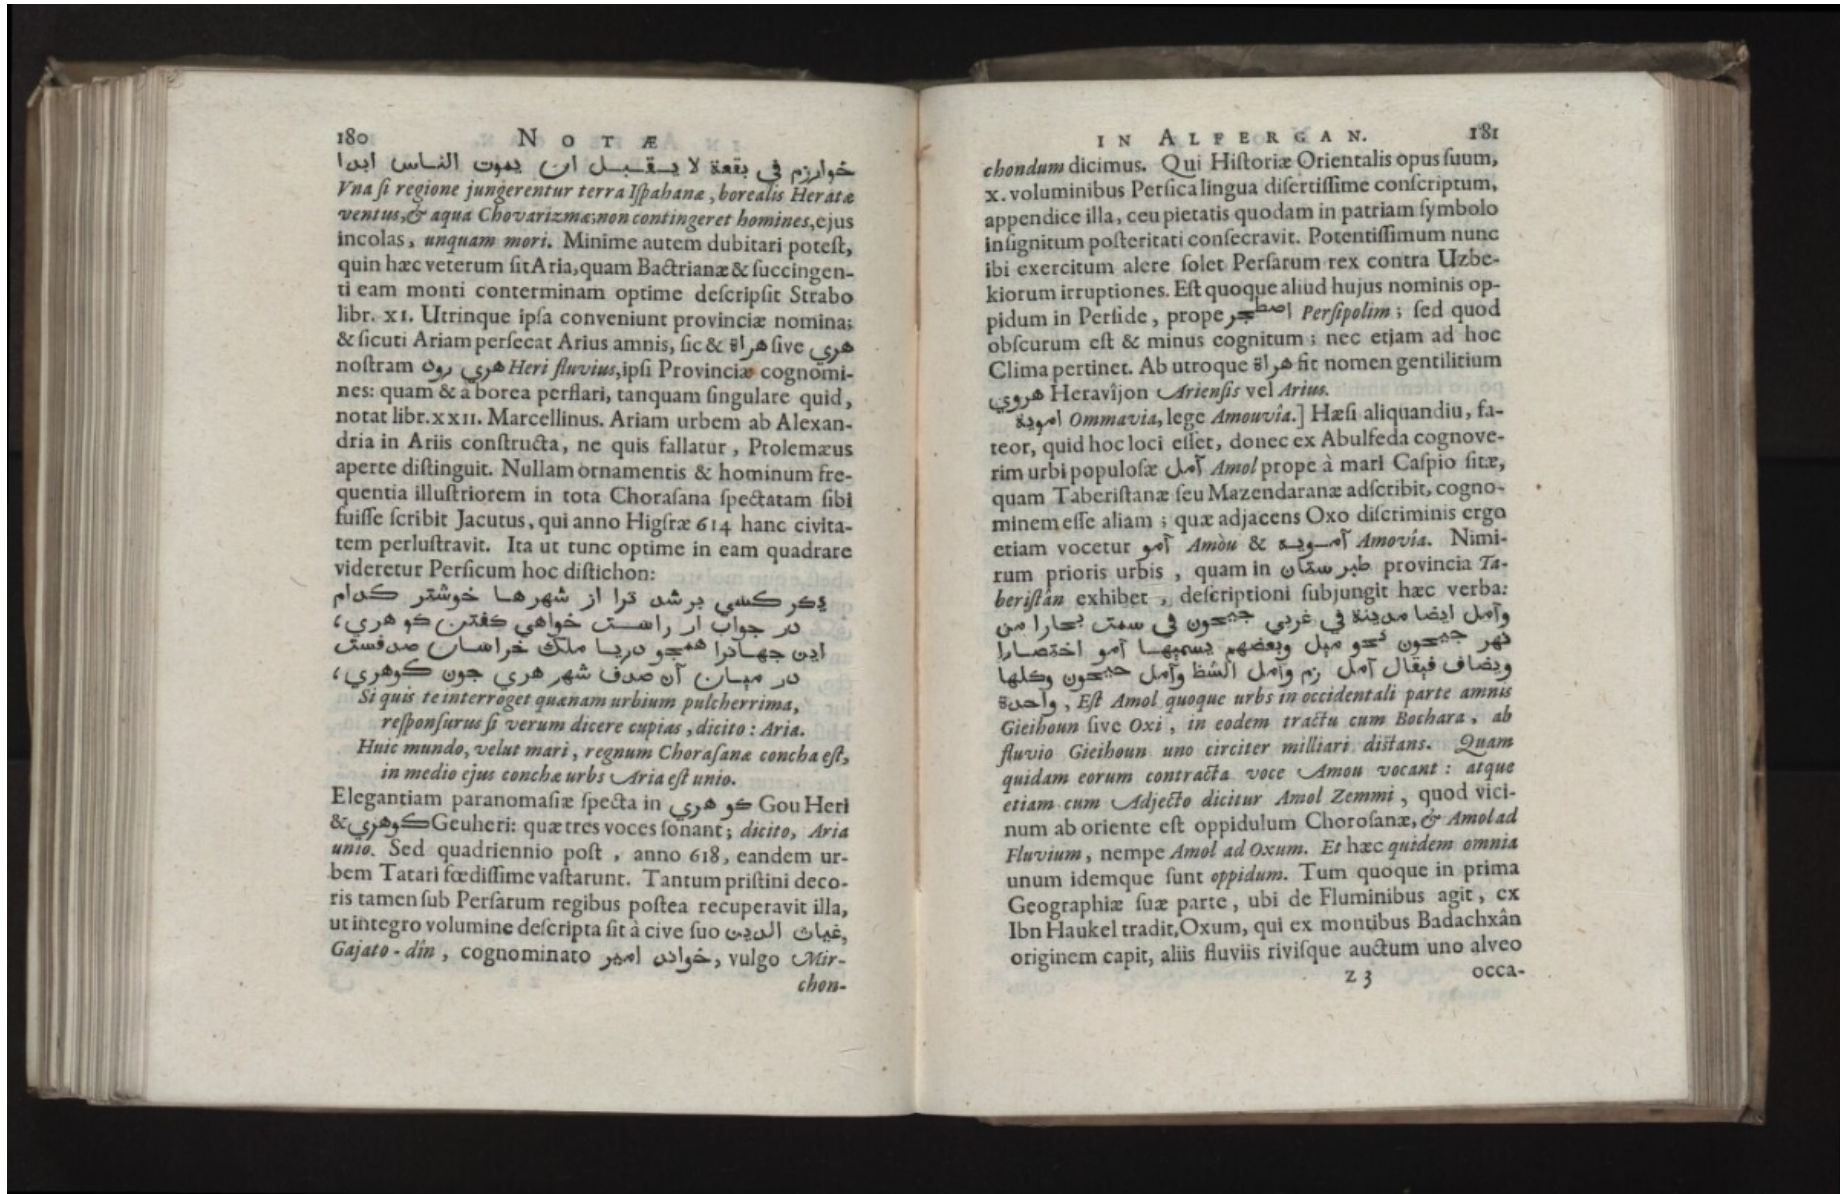 180 NOTÆ
خوارزم في بقعة لا يقبل ان يموت الناس ابدا
Vna si regione jungerentur terra Ispahanæ, borealis Heratæ
ventus, & aqua Chovarizmæ; non contingeret homines, ejus
incolas, unquam mori. Minime autem dubitari potest,
quin hæc veterum sit Aria, quam Bactrianæ & succingen-
ti eam monti conterminam optime descripsit Strabo
libr. XI. Utrinque ipsa conveniunt provinciæ nomina;
& sicuti Ariam persecat Arius amnis, sic & هراة sive هري
nostram هري رود Heri fluvius, ipsi Provinciæ cognomi-
nes: quam & à borea perflari, tanquam singulare quid,
notat libr. XXII. Marcellinus. Ariam urbem ab Alexan-
dria in Ariis constructa, ne quis fallatur, Ptolemæus
aperte distinguit. Nullam ornamentis & hominum fre-
quentia illustriorem in tota Chorasana spectatam sibi
fuisse scribit Jacutus, qui anno Higsræ 614 hanc civita-
tem perlustravit. Ita ut tunc optime in eam quadrare
videretur Persicum hoc distichon:
كر كسي برشد ترا از شهرها خوشتر كدام
در جواب ار راست خواهي كفتن كو هري،
اين جهانرا همجو دريا ملك خراسان صدفست
در ميان آن صدف شهر هري جون كوهري،
Si quis te interroget quænam urbium pulcherrima,
responsurus si verum dicere cupias, dicito: Aria.
Huic mundo, velut mari, regnum Chorasanæ concha est,
in medio ejus conchæ urbs Aria est unio.
Elegantiam paranomasiæ specta in كو هري Gou Heri
& كوهري Geuheri: quæ tres voces sonant; dicito, Aria
unio. Sed quadriennio post, anno 618, eandem ur-
bem Tatari fœdissime vastarunt. Tantum pristini deco-
ris tamen sub Persarum regibus postea recuperavit illa,
ut integro volumine descripta sit à cive suo غياث الدين,
Gajato-dîn, cognominato خواند امير, vulgo Mir-
chon-
IN ALFERGAN. 181
chondum dicimus. Qui Historiæ Orientalis opus suum,
X. voluminibus Persica lingua disertissime conscriptum,
appendice illa, ceu pietatis quodam in patriam symbolo
insignitum posteritati consecravit. Potentissimum nunc
ibi exercitum alere solet Persarum rex contra Uzbe-
kiorum irruptiones. Est quoque aliud hujus nominis op-
pidum in Perside, prope اصطخر Persipolim; sed quod
obscurum est & minus cognitum; nec etjam ad hoc
Clima pertinet. Ab utroque هراة fit nomen gentilitium
هروي Heravîjon Ariensis vel Arius.
اموية Ommavia, lege Amouvîa.] Hæsi aliquandiu, fa-
teor, quid hoc loci esset, donec ex Abulfeda cognove-
rim urbi populosæ آمل Amol prope à mari Caspio sitæ,
quam Taberistanæ seu Mazendaranæ adscribit, cogno-
minem esse aliam; quæ adjacens Oxo discriminis ergo
etiam vocetur آمو Amòu & آمويه Amovîa. Nimi-
rum prioris urbis, quam in طبرستان provincia Ta-
beristân exhibet, descriptioni subjungit hæc verba:
وآمل ايضا مدينة في غربي جيحون في سمت بخارا من
نهر جيحون نحو ميل وبعضهم يسميها آمو اختصارا
ويضاف فيقال آمل زم وآمل الشظ وآمل جيحون وكلها
واحدة, Est Amol quoque urbs in occidentali parte amnis
Gieihoun sive Oxi, in eodem tractu cum Bochara, ab
fluvio Gieihoun uno circiter milliari distans. Quam
quidam eorum contracta voce Amou vocant: atque
etiam cum Adjecto dicitur Amol Zemmi, quod vici-
num ab oriente est oppidulum Chorosanæ, & Amol ad
Fluvium, nempe Amol ad Oxum. Et hæc quidem omnia
unum idemque sunt oppidum. Tum quoque in prima
Geographiæ suæ parte, ubi de Fluminibus agit, ex
Ibn Haukel tradit, Oxum, qui ex montibus Badachxân
originem capit, aliis fluviis rivisque auctum uno alveo
Z 3 occa-